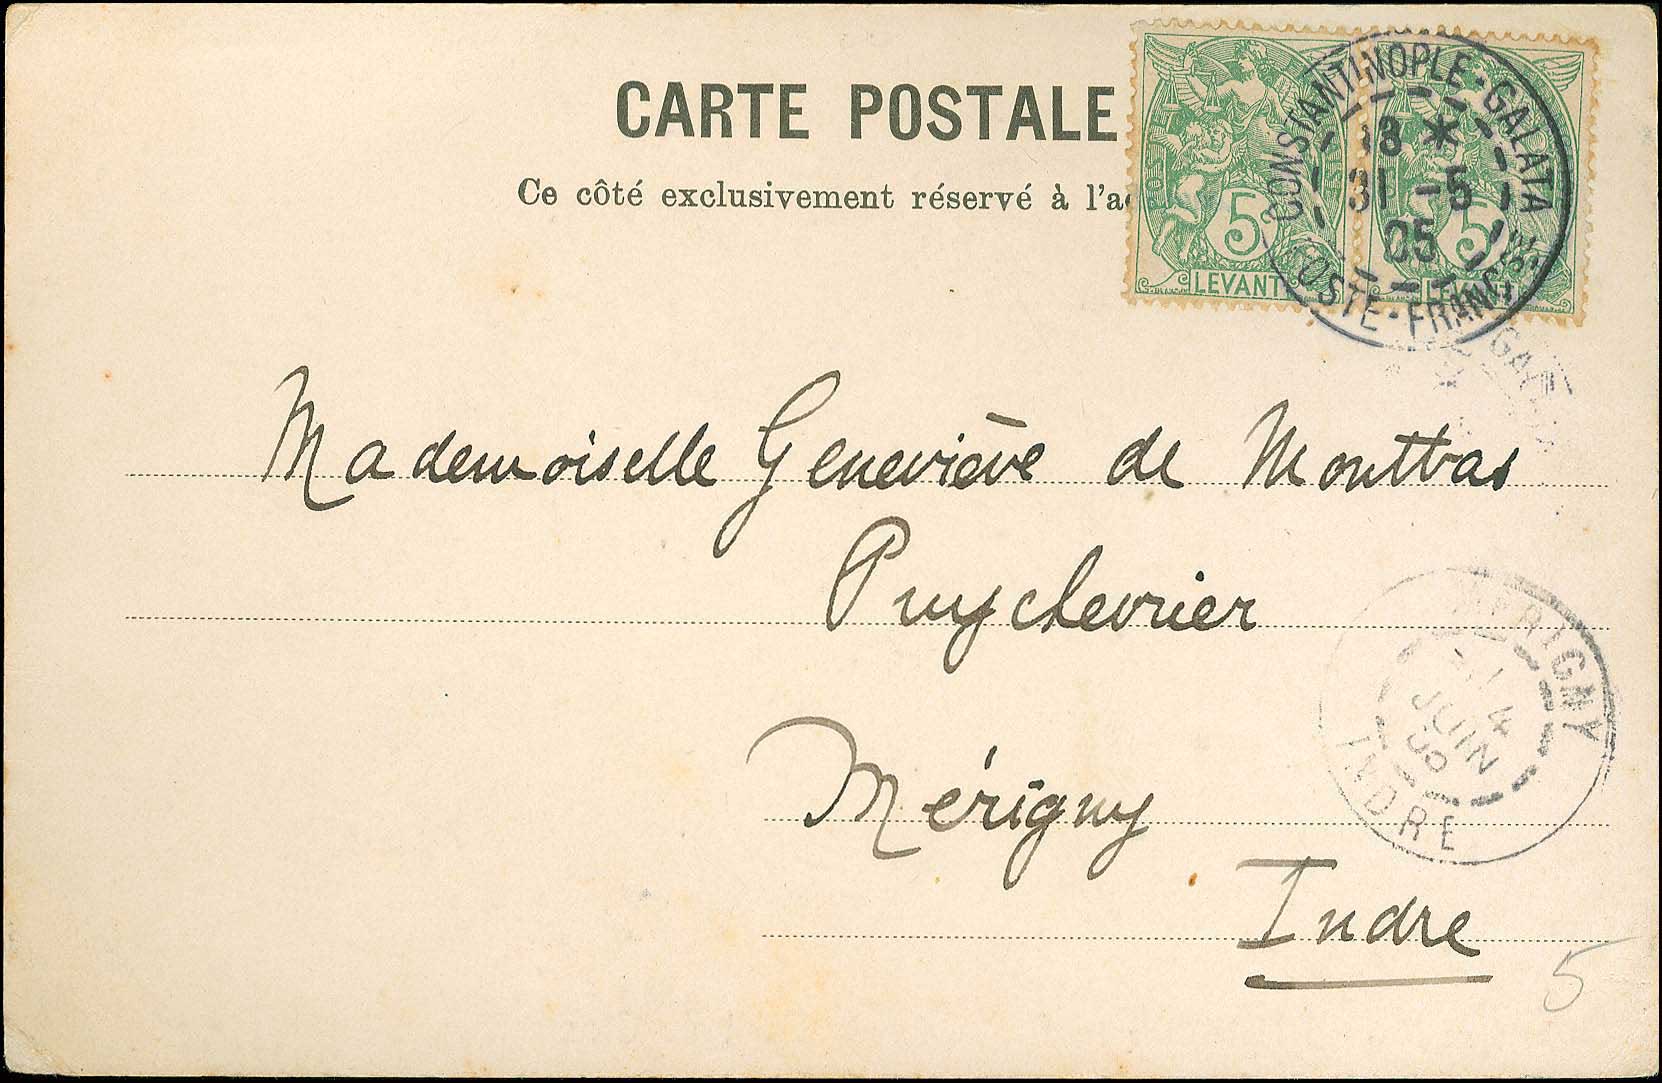 CARTE POSTALE
Ce côté exclusivement réservé à l'a
5
LEVANT
5
CONSTANTINOPLE-GALATA
18 *
31 -5
05
POSTE-FRANÇSE
Mademoiselle Geneviève de Montbas
Puychevrier
Mérigny
Indre
MERIGNY
4
JUIN
05
INDRE
5